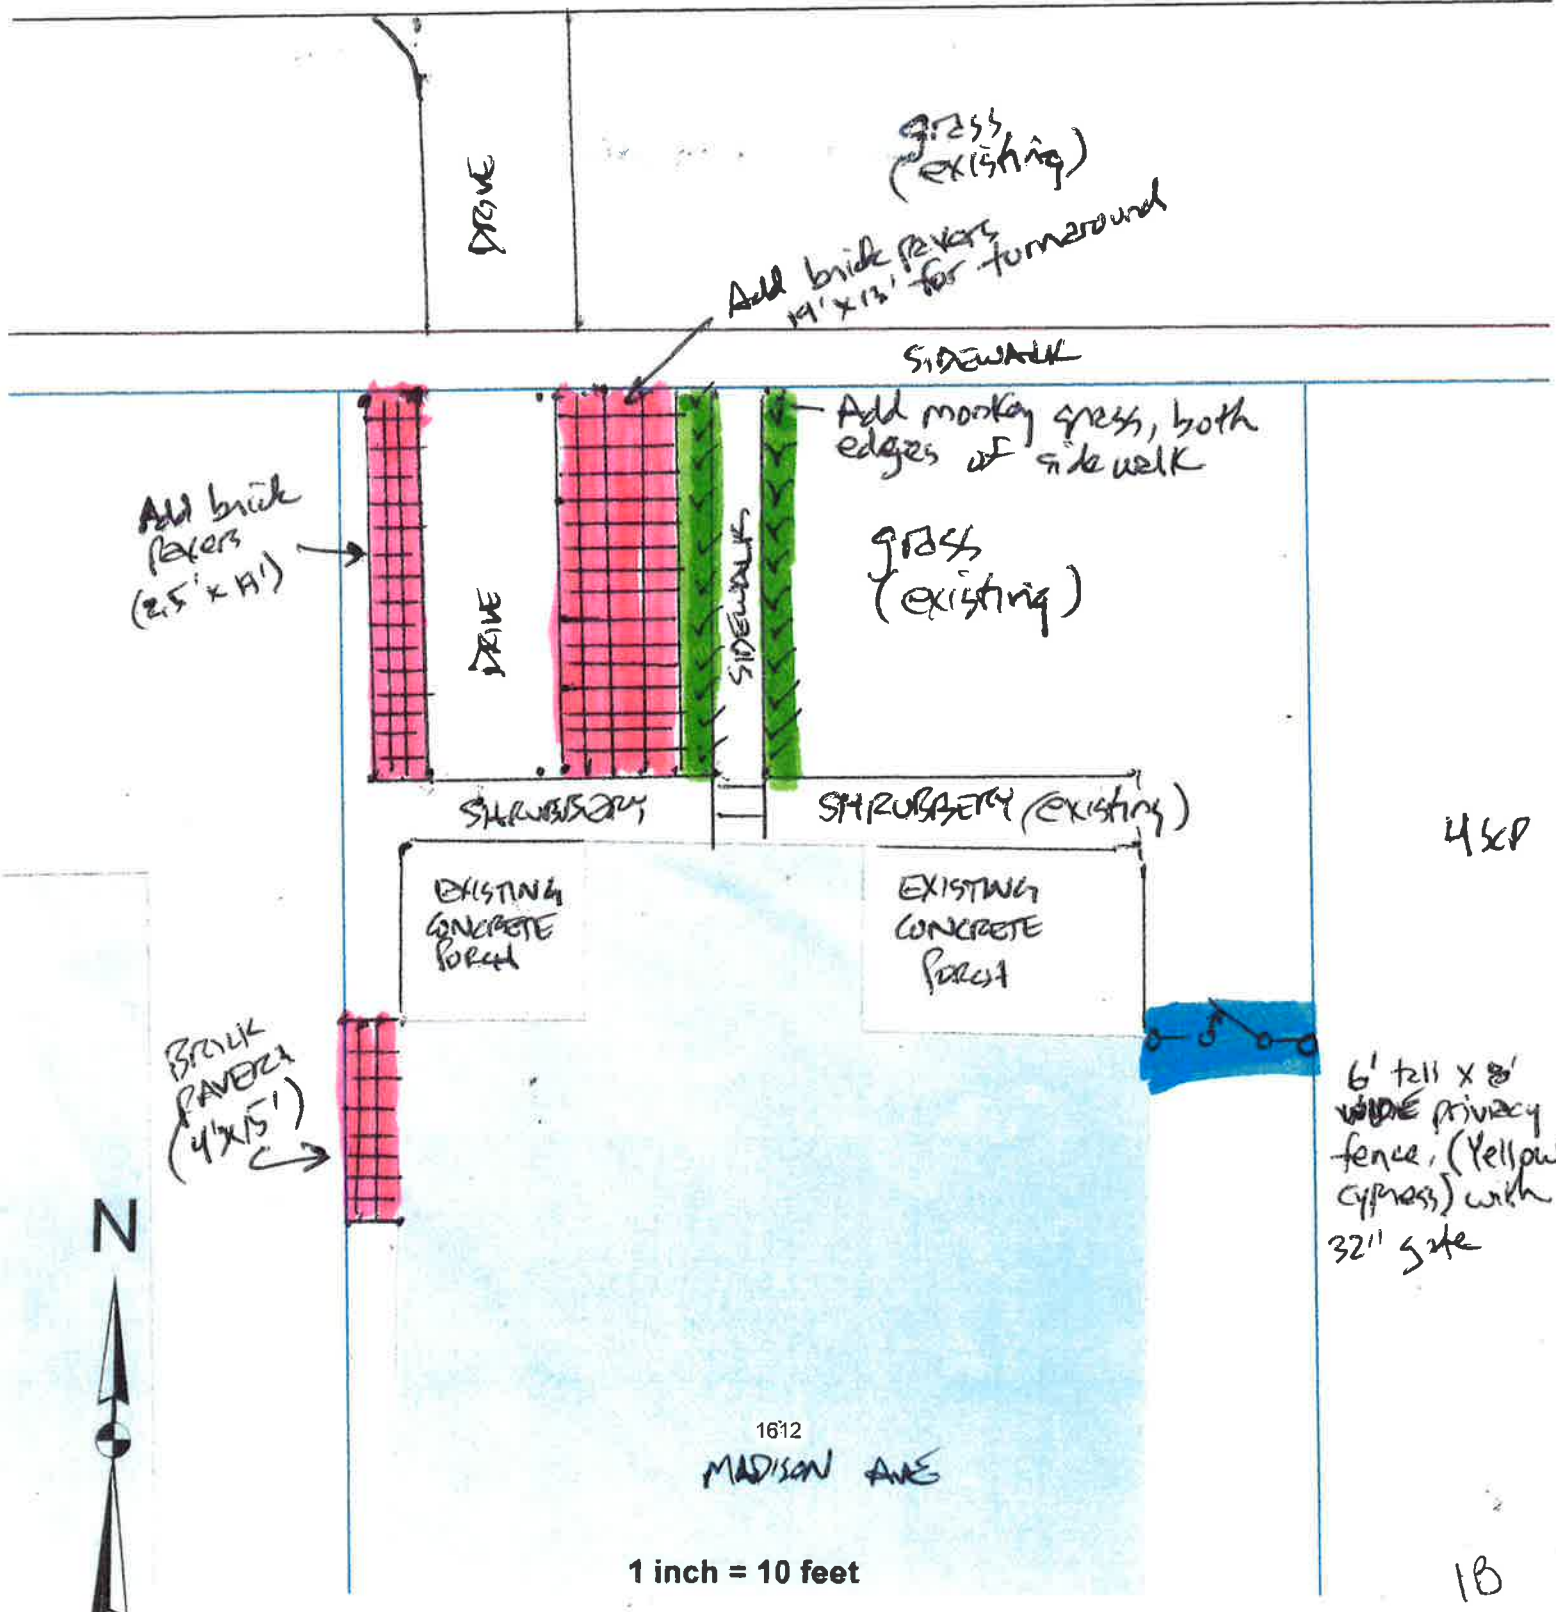 DRIVE
grass
(existing)
Add brick pavers
19' x 13' for turnaround
SIDEWALK
Add monkey grass, both
edges of sidewalk
Add brick
pavers
(2.5' x 19')
DRIVE
SIDEWALK
grass
(existing)
SHRUBBERY
SHRUBBERY (existing)
EXISTING
CONCRETE
PORCH
EXISTING
CONCRETE
PORCH
BRICK
PAVERS
(4'x15')
6' tall x 8'
WIDE privacy
fence, (Yellow
cypress) with
32" gate
N
1612
MADISON AVE
1 inch = 10 feet